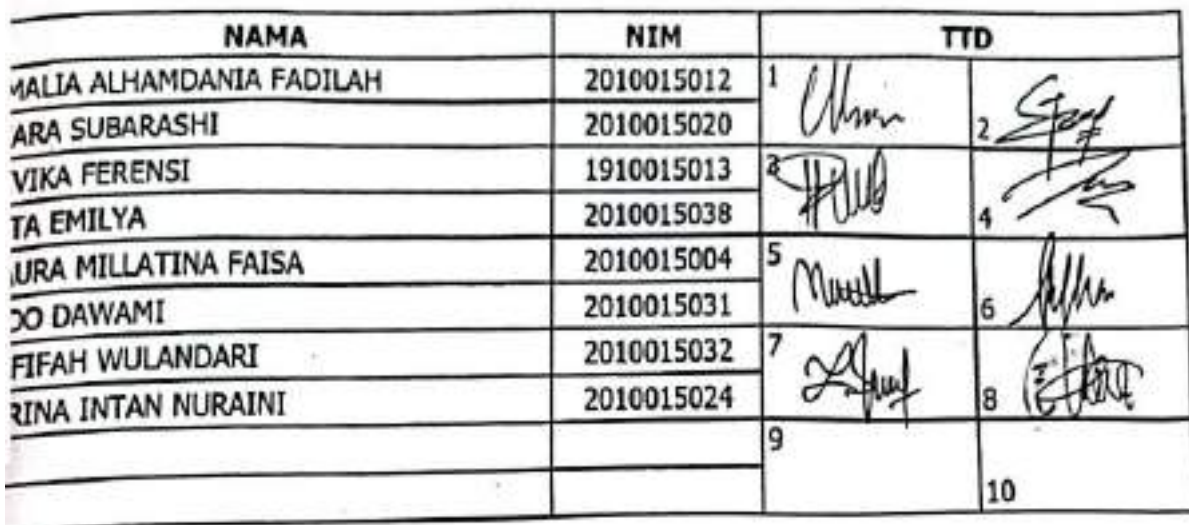 NAMA NIM TTD
MALIA ALHAMDANIA FADILAH 2010015012 1
ARA SUBARASHI 2010015020 2
VIKA FERENSI 1910015013 3
TA EMILYA 2010015038 4
AURA MILLATINA FAISA 2010015004 5
DO DAWAMI 2010015031 6
FIFAH WULANDARI 2010015032 7
RINA INTAN NURAINI 2010015024 8
9
10